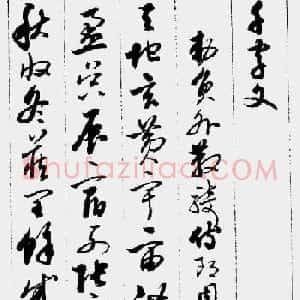 千字文
勅員外散騎侍郎周
天地玄黃宇宙洪
盈昃辰宿列張
秋收冬藏閏餘成